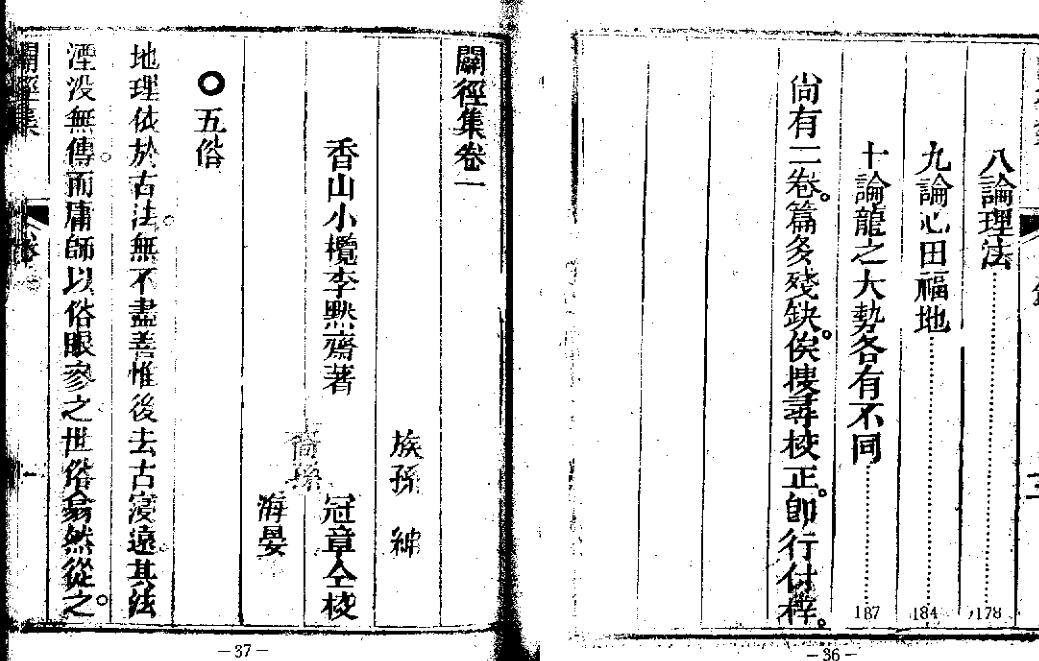 八論理法 178
九論心田福地 184
十論龍之大勢各有不同 187
尚有二卷篇多殘缺。俟搜尋校正。即行付梓。
－36－
闢徑集卷一
族孫 紳
香山小欖李默齋著 冠章仝校
裔孫
海晏
五俗
地理依於古法。無不盡善惟後去古寖遠。其法
湮没無傳。而庸師以俗眼參之世俗翕然從之。
闢徑集 卷一 一
－37－